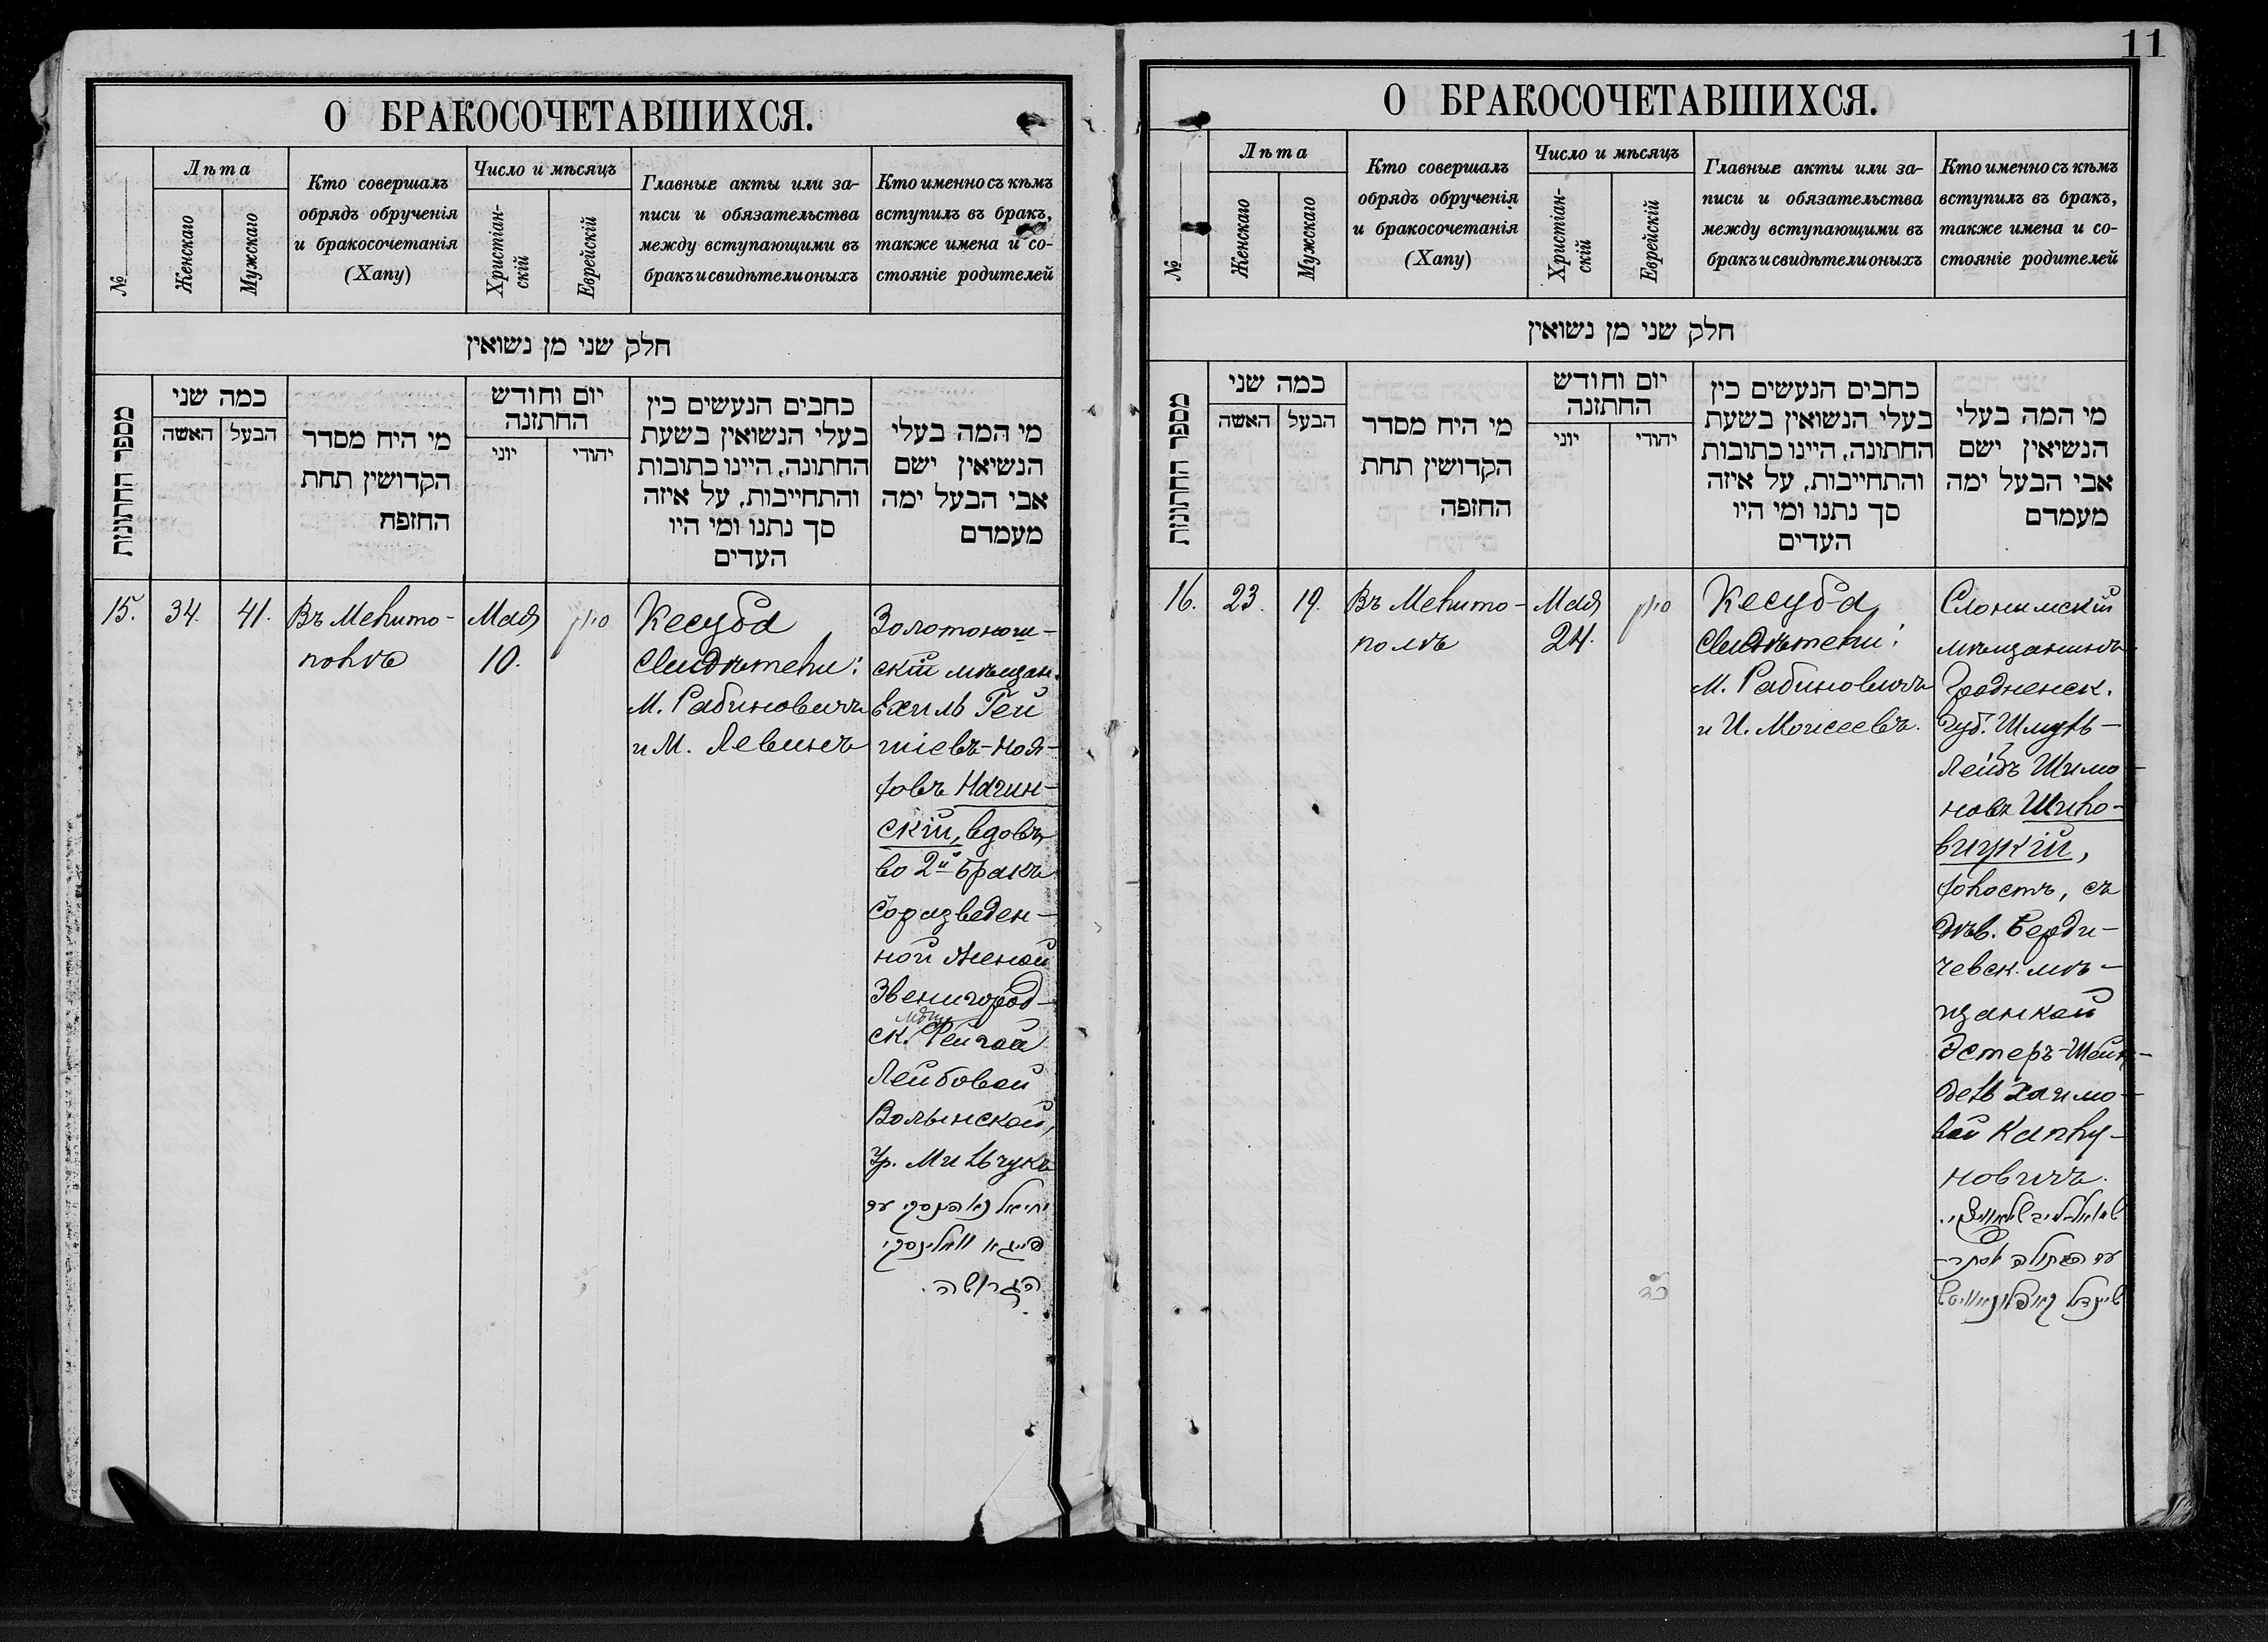 11
О БРАКОСОЧЕТАВШИХСЯ.
№
Лѣта
Женскаго
Мужскаго
Кто совершалъ
обрядъ обрученія
и бракосочетанія
(Хапу)
Число и мѣсяцъ
Христіан-
скій
Еврейскій
Главные акты или за-
писи и обязательства
между вступающими въ
бракъ и свидѣтели оныхъ
Кто именно съ кѣмъ
вступилъ въ бракъ,
также имена и со-
стояніе родителей
חלק שני מן נשואין
מספר החתונות
כמה שני
האשה
הבעל
מי היח מסדר
הקדושין תחת
החופה
יום וחודש
החתונה
יוני
יהודי
כחבים הנעשים כין
בעלי הנשואין בשעת
החתונה, היינו כתובות
והתחייבות, על איזה
סך נתנו ומי היו
העדים
מי המה בעלי
הנשיאין ישם
אבי הבעל ימה
מעמדם
15.
34.
41.
Въ Мелито-
полѣ
Мая
10.
סיון
Кесуба
Свидѣтели:
М. Рабиновичъ
и М. Левинъ
Золотоноги-
скій мѣщан.
Ехиль Гей
шіевъ-Ноя-
ховъ Нагин-
скій, вдовъ,
во 2й бракъ
со разведен-
ной женой
Звенигород-
ск. мѣщ. Фейгой
Лейбовой
Волынской,
ур. Мильчукъ
יחיאל נאהינסקי עם
פייגא וואלינסקי
הגרושה.
О БРАКОСОЧЕТАВШИХСЯ.
№
Лѣта
Женскаго
Мужскаго
Кто совершалъ
обрядъ обрученія
и бракосочетанія
(Хапу)
Число и мѣсяцъ
Христіан-
скій
Еврейскій
Главные акты или за-
писи и обязательства
между вступающими въ
бракъ и свидѣтели оныхъ
Кто именно съ кѣмъ
вступилъ въ бракъ,
также имена и со-
стояніе родителей
חלק שני מן נשואין
מספר החתונות
כמה שני
האשה
הבעל
מי היח מסדר
הקדושין תחת
החופה
יום וחודש
החתונה
יוני
יהודי
כחבים הנעשים כין
בעלי הנשואין בשעת
החתונה, היינו כתובות
והתחייבות, על איזה
סך נתנו ומי היו
העדים
מי המה בעלי
הנשיאין ישם
אבי הבעל ימה
מעמדם
16.
23.
19.
Въ Мелито-
полѣ
Мая
24.
סיון
כד
Кесуба,
Свидѣтели:
М. Рабиновичъ
и И. Моисеевъ.
Слонимскій
мѣщанинъ
Гродненск.
губ. Шмуль-
Лейбъ Шимо-
новъ Шило-
вицкій,
холостъ, съ
дѣв. Берди-
чевск. мѣ-
щанкой
Эстеръ-Шейн-
дель Хаимо-
вой Каплу-
новичъ.
שמואל-ליב שילאוויצקי.
עם הבתולה אסתר-
שיינדל קאפלונאוויטש